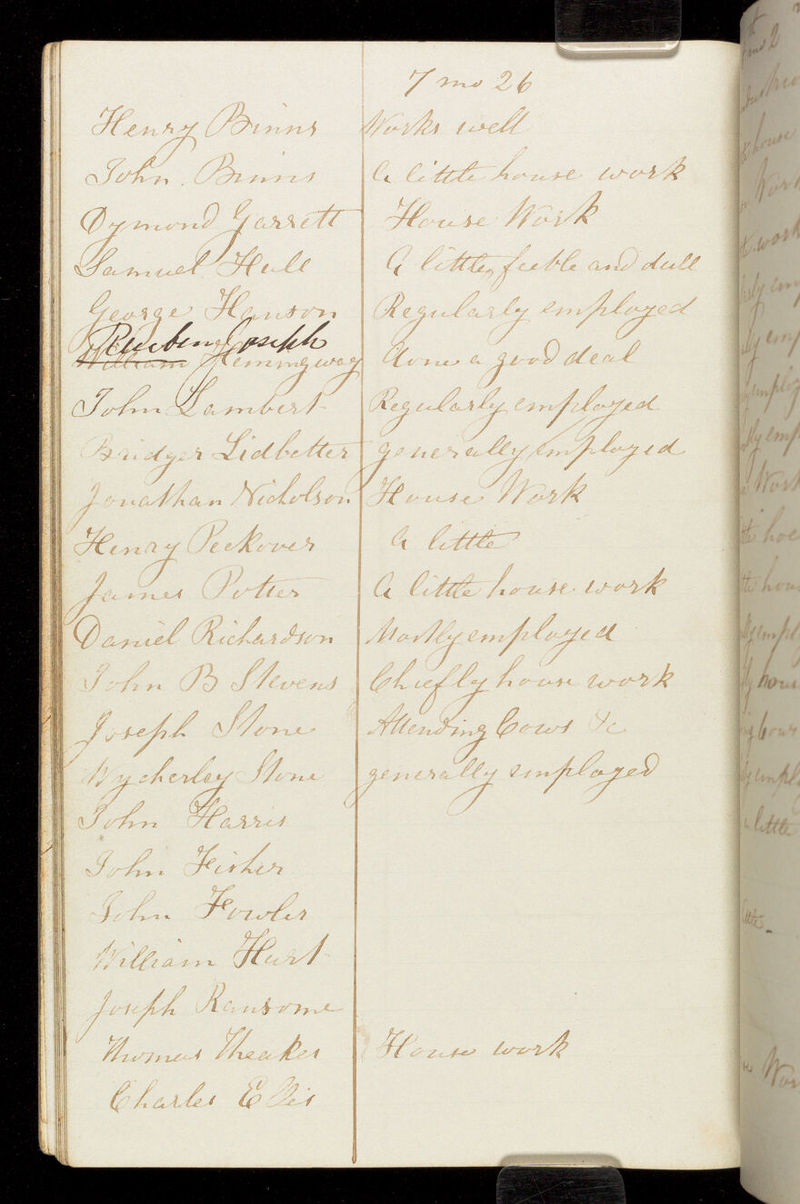 7 mo 26
Henry Binns Works well
John Binns A little house work
Dymond Garrett House Work
Samuel Hull A little, feeble and dull
George Hanson Regularly employed
Reuben Joseph
William Hemingway done a good deal
John Lambert Regularly employed
Bridger Lidbetter generally employed
Jonathan Nicholson House Work
Henry Peckover A little
James Potter A little house work
Daniel Richardson Mostly employed
John B Stevens Chiefly house work
Joseph Stone Attending Cows &c
Wycherley Stone generally employed
John Harris
John Fisher
John Fowler
William Hurt
Joseph Ransome
Thomas Theaker House work
Charles Ellis